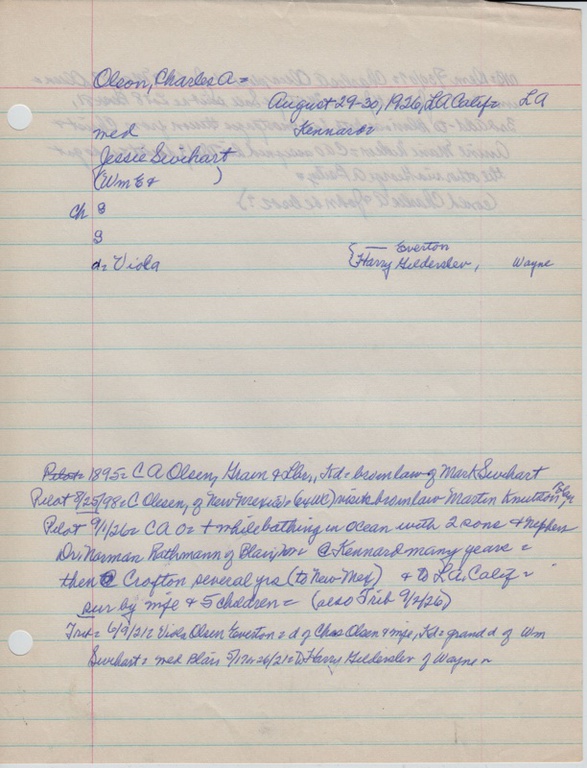 Olson, Charles A =
August 29-30, 1926, LA Calif = LA
med Kennard =
Jessie Swihart
(Wm E & )
ch S
S
d = Viola { — Everton
Harry Gilderslev, Wayne
Pilot = 1895 = C A Olsen, Grain & Lbr, Kd = bro in law of Mark Swihart
Pilot 8/25/98 = C Olsen, of New Mexico = visits bro in law Martin Knutson
Pilot 9/1/26 = C A O = + while bathing in ocean with 2 sons & nephew
Dr. Norman Rathmann of Blair, @ Kennard many years =
then @ Crofton several yrs (to New Mex) & to LA. Calif =
sur by wife & 5 children = (also Trib 9/2/26)
Trib = 6/9/21 = Viola Olsen Everton = d of Chas Olsen & wife, Kd = grand d of Wm
Swihart = med Blair Harry Gilderslev of Wayne